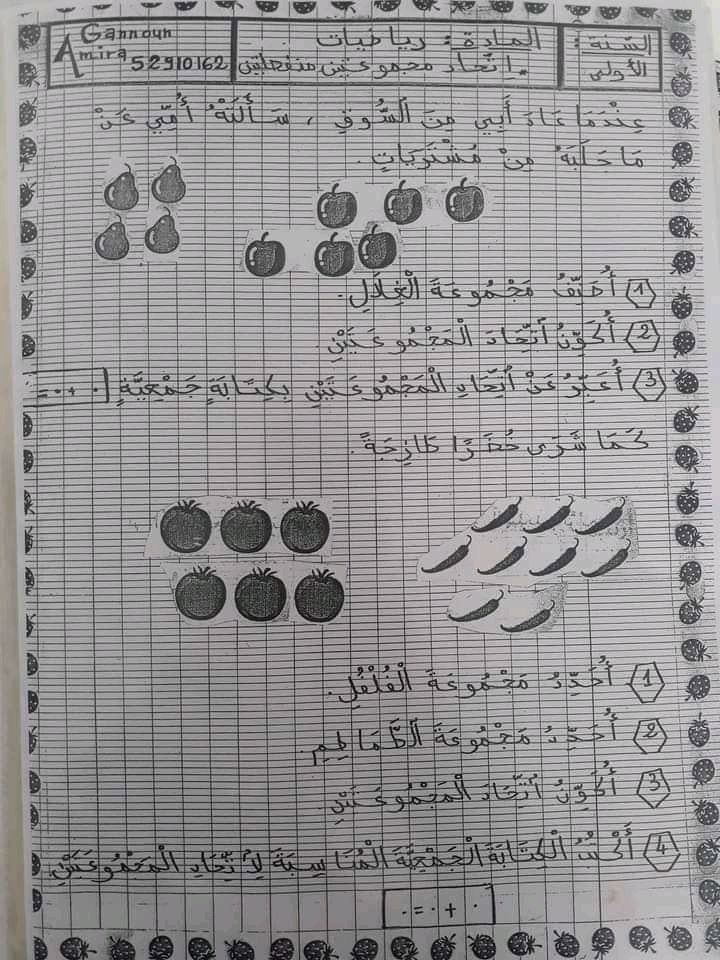 السّنة :
الأولى
المادة : رياضيات
. اتّحاد مجموعتين منفصلتين
Gannoun
Amira 52910162
عِنْدَمَا عَادَ أَبِي مِنَ السُّوقِ ، سَأَلَتْهُ أُمِّي عَنْ
مَا جَلَبَهُ مِنْ مُشْتَرَيَاتٍ .
1 أُصَنِّفُ مَجْمُوعَةَ الْغِلَالِ .
2 أُكَوِّنُ اتِّحَادَ الْمَجْمُوعَتَيْنِ
3 أُعَبِّرُ عَنْ اتِّحَادِ الْمَجْمُوعَتَيْنِ بِكِتَابَةٍ جَمْعِيَّةٍ . + . = .
كَمَا شَرَى خُضَرًا طَازِجَةً .
1 أُحَدِّدُ مَجْمُوعَةَ الْفُلْفُلِ .
2 أُحَدِّدُ مَجْمُوعَةَ الطَّمَاطِمِ .
3 أُكَوِّنُ اتِّحَادَ الْمَجْمُوعَتَيْنِ .
4 أَكْتُبُ الْكِتَابَةَ الْجَمْعِيَّةَ الْمُنَاسِبَةَ لِاتِّحَادِ الْمَجْمُوعَتَيْنِ
. + . = .